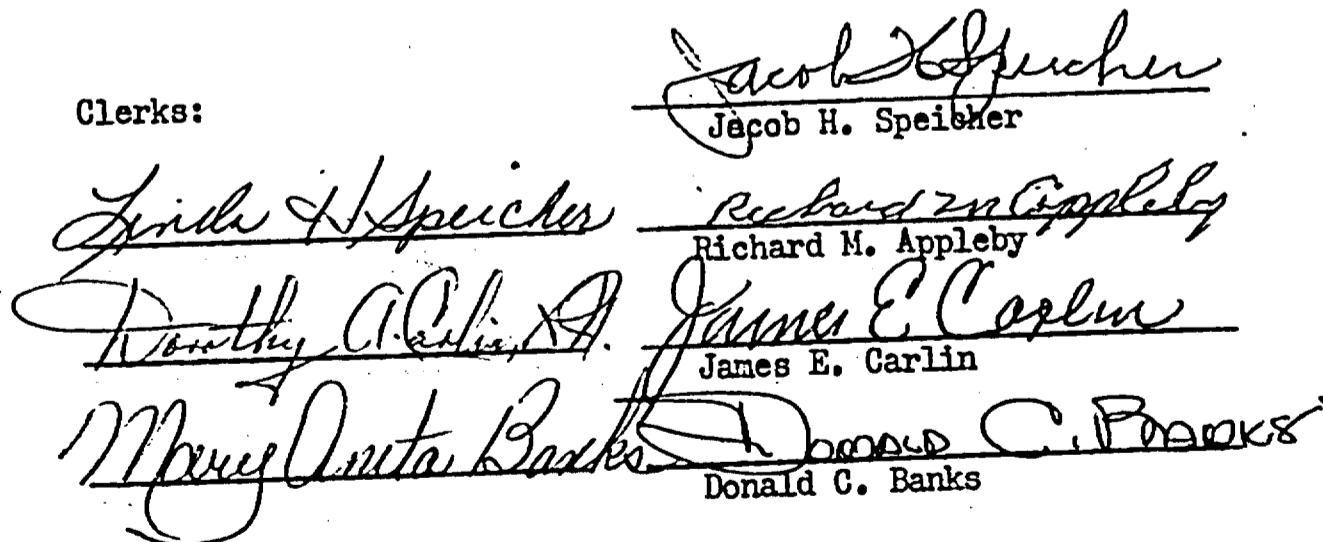 Jacob H Speicher
Clerks:
Jacob H. Speicher
Linda H Speicher Richard M Appleby
Richard M. Appleby
Dorothy A. Carlin, R.N. James E Carlin
James E. Carlin
Mary Anita Banks Donald C. Banks
Donald C. Banks